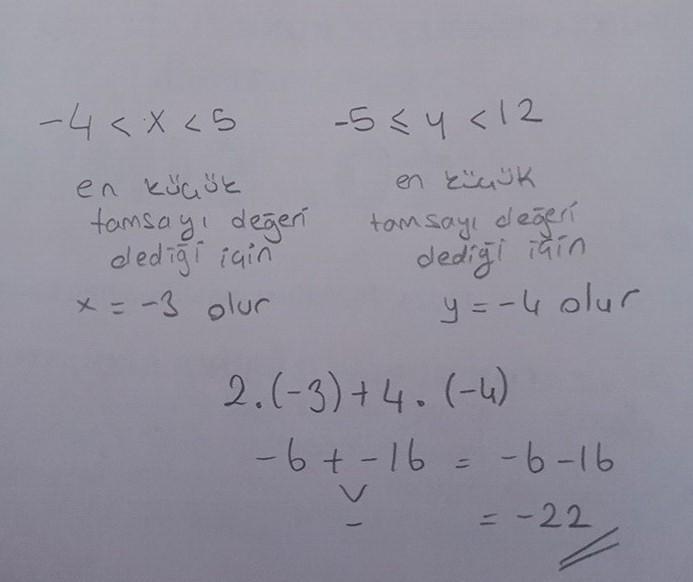 -4 < x < 5
-5 ≤ y < 12
en küçük
tamsayı değeri
dediği için
x = -3 olur
en küçük
tamsayı değeri
dediği için
y = -4 olur
2.(-3) + 4.(-4)
-6 + -16 = -6 - 16
-
= -22